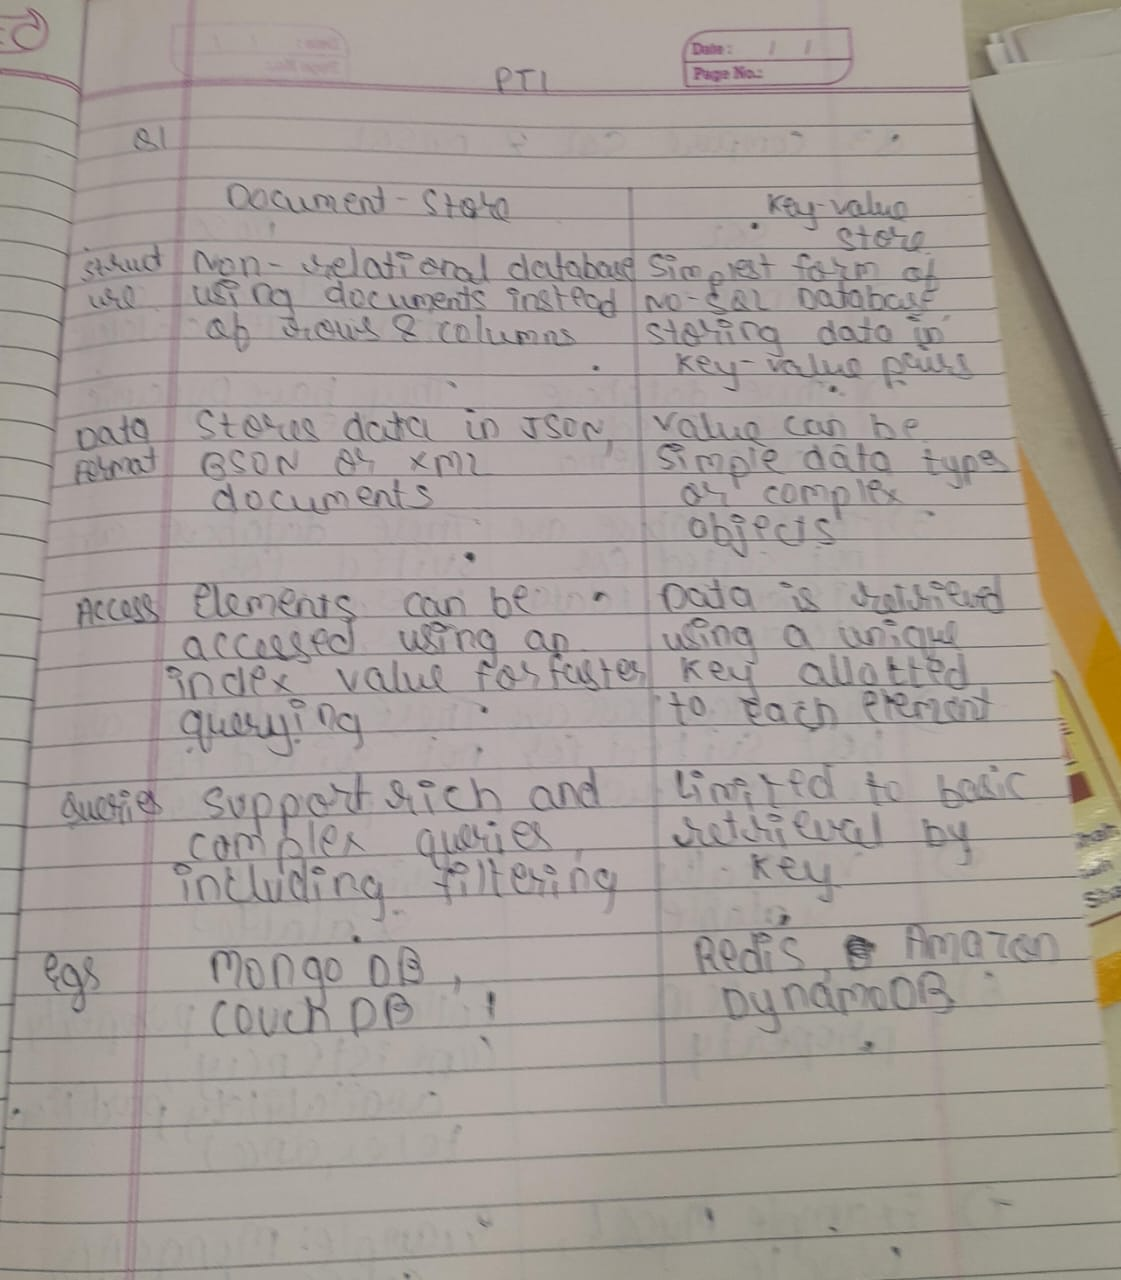 Date : / /
Page No.:
PT1
Q1
Document-Store
Key-value
Store
Struct
ure
Non-relational database
using documents instead
of rows & columns
Simplest form of
No-SQL Database
storing data in
key-value pairs
Data
Format
Stores data in JSON,
BSON or XML
documents
Value can be
simple data types
or complex
objects
Access
Elements can be
accessed using an
index value for faster
querying
Data is retrieved
using a unique
key allotted
to each element
Queries
Support rich and
complex queries
including filtering
Limited to basic
retrieval by
key
egs
Mongo DB,
Couch DB
Redis Amazon
DynamoDB